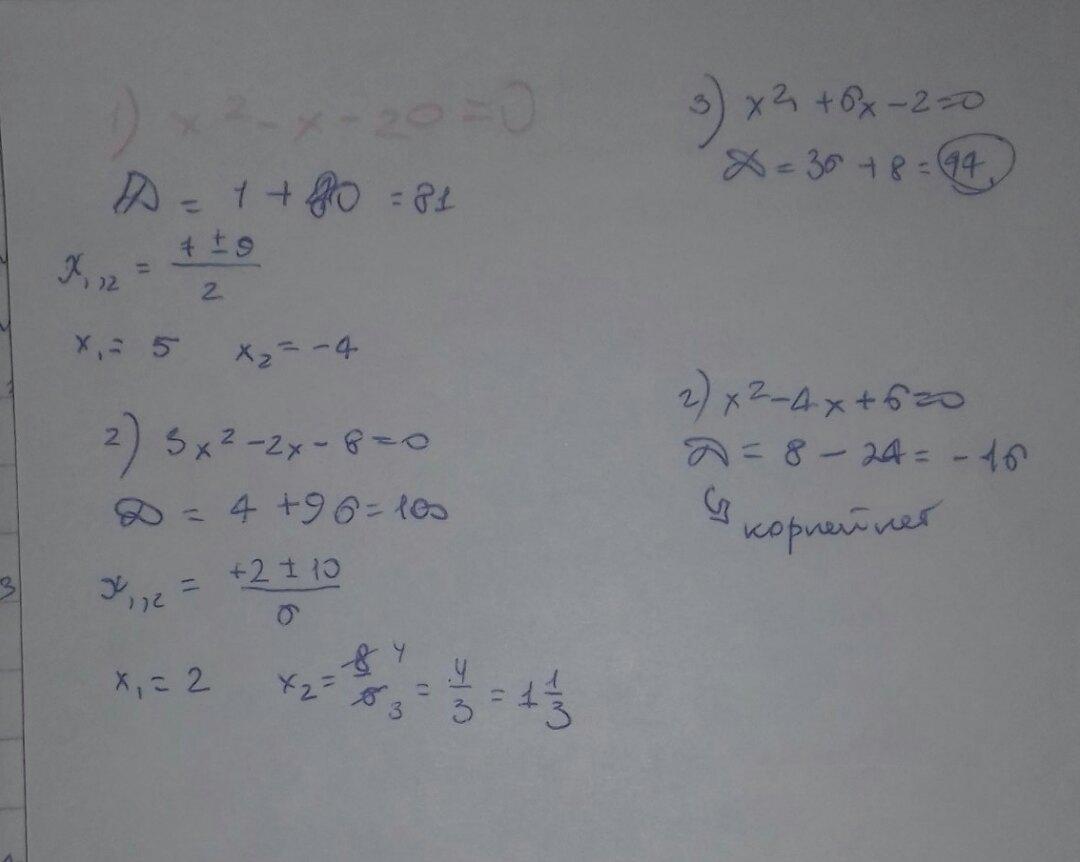 1) x² - x - 20 = 0
D = 1 + 80 = 81
x₁,₂ = (1 ± 9)/2
x₁ = 5 x₂ = -4
2) 3x² - 2x - 8 = 0
D = 4 + 96 = 100
x₁,₂ = (+2 ± 10)/6
x₁ = 2 x₂ = 8/6 4/3 = 4/3 = 1 1/3
3) x² + 6x - 2 = 0
D = 36 + 8 = 44
2) x² - 4x + 6 = 0
D = 8 - 24 = -16
↳ корней нет